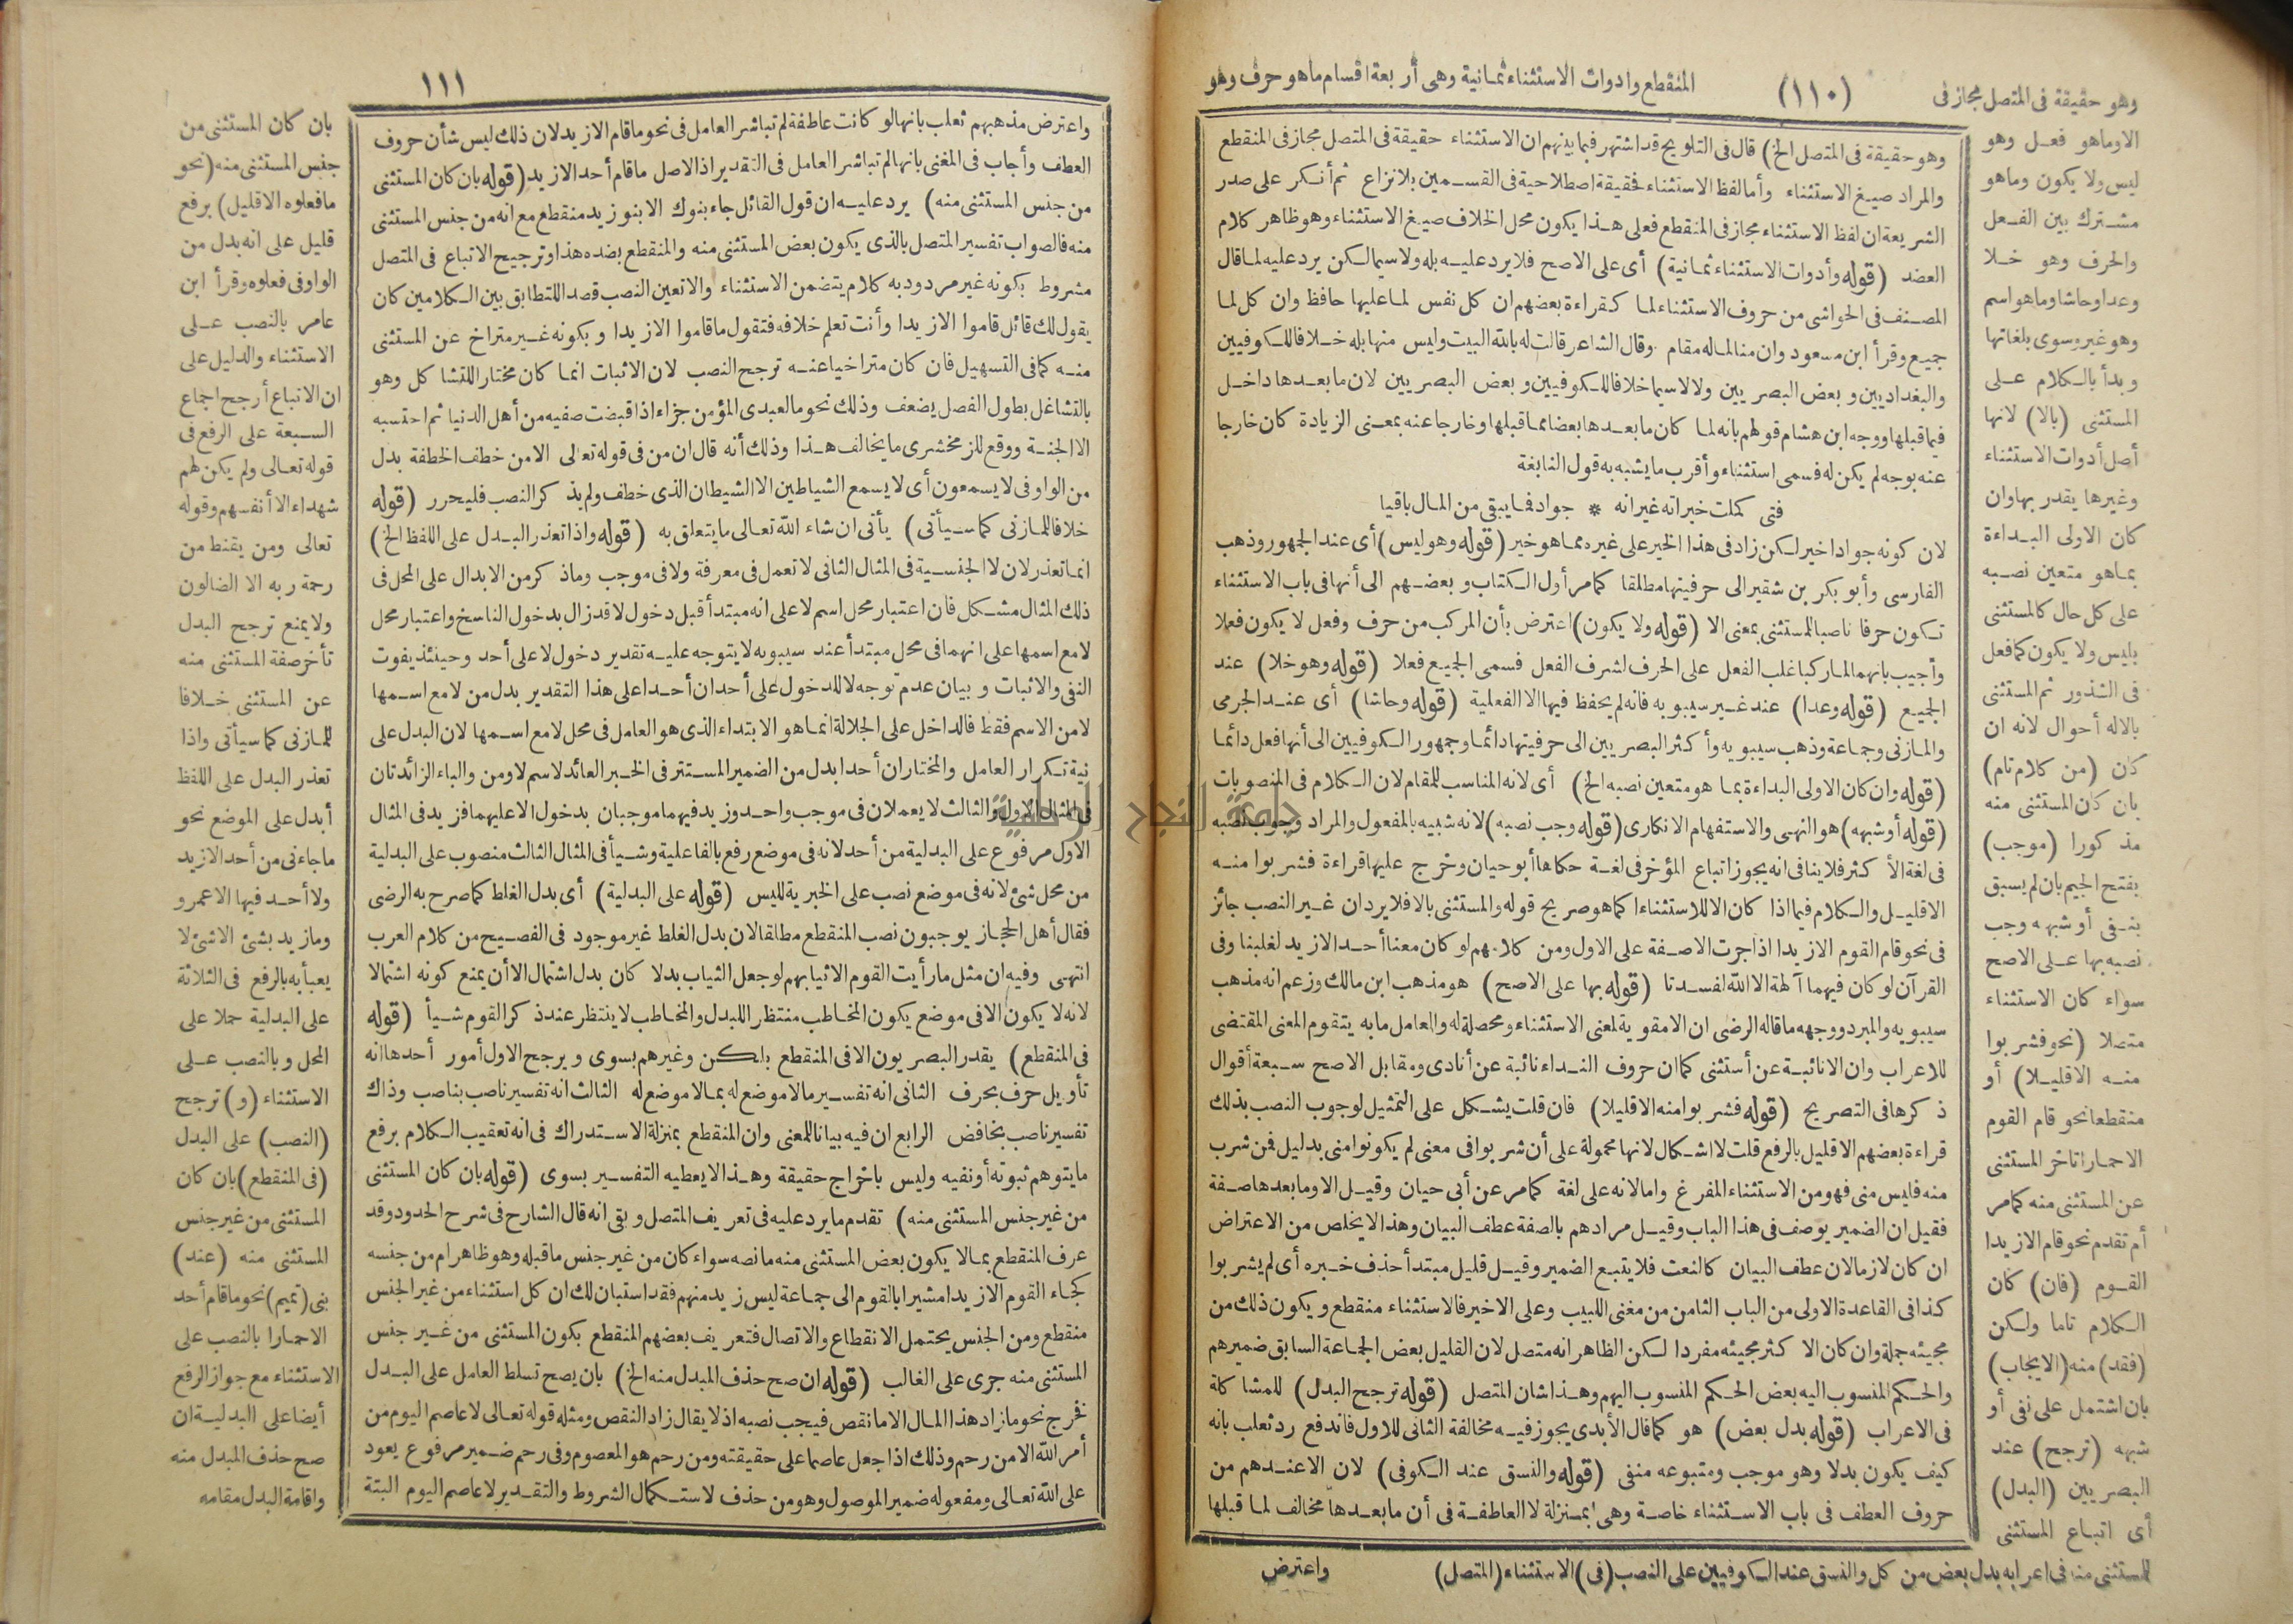 وهو حقيقة فى المتصل مجاز فى (١١٠) المنقطع وادوات الاستثناء ثمانية وهى أربعة اقسام ما هو حرف وهو
وهو حقيقة فى المتصل الخ) قال فى التلويح قد اشتهر فيما بينهم ان الاستثناء حقيقة فى المتصل مجاز فى المنقطع
والمراد صيغ الاستثناء وأما لفظ الاستثناء فحقيقة اصطلاحية فى القسمين بلا نزاع ثم أنكر على صدر
الشريعة ان لفظ الاستثناء مجاز فى المنقطع فعلى هذا يكون محل الخلاف صيغ الاستثناء وهو ظاهر كلام
العضد (قوله وأدوات الاستثناء ثمانية) أى على الاصح فلا يرد عليه بله ولا سيما لكن يرد عليه لما قال
المصنف فى الحواشى من حروف الاستثناء لما كقراءة بعضهم ان كل نفس لما عليها حافظ وان كل لما
جميع وقرأ ابن مسعود وان منا لما له مقام وقال الشاعر قالت له بالله البيت وليس منها بله خلافا للكوفيين
والبغداديين وبعض البصريين ولا لاسيما خلافا للكوفيين وبعض البصريين لان ما بعدها داخل
فيما قبلها ووجه ابن هشام قولهم بانه لما كان ما بعدها بعضا مما قبلها وخارجا عنه بمعنى الزيادة كان خارجا
عنه بوجه لم يكن له فسمى استثناء وأقرب ما يشبه به قول النابغة
فتى كملت خيراته غير انه * جواد فما يبقى من المال باقيا
لان كونه جوادا خير لكن زاد فى هذا الخير على غيره مما هو خير (قوله وهو ليس) أى عند الجمهور وذهب
الفارسى وأبو بكر بن شقير الى حرفيتها مطلقا كما مر أول الكتاب وبعضهم الى أنها فى باب الاستثناء
تكون حرفا ناصبا للمستثنى بمعنى الا (قوله ولا يكون) اعترض بأن المركب من حرف وفعل لا يكون فعلا
وأجيب بانهما لما ركبا غلب الفعل على الحرف لشرف الفعل فسمى الجميع فعلا (قوله وهو خلا) عند
الجميع (قوله وعدا) عند غير سيبويه فانه لم يحفظ فيها الا الفعلية (قوله وحاشا) أى عند الجرمى
والمازنى وجماعة وذهب سيبويه وأكثر البصريين الى حرفيتها دائما وجمهور الكوفيين الى أنها فعل دائما
(قوله وان كان الاولى البداءة بما هو متعين نصبه الخ) أى لانه المناسب للمقام لان الكلام فى المنصوبات
(قوله أو شبهه) هو النهى والاستفهام الانكارى (قوله وجب نصبه) لانه شبيه بالمفعول والمراد وجوب نصبه
فى لغة الأكثر فلا ينافى انه يجوز اتباع المؤخر فى لغة حكاها أبو حيان وخرج عليها قراءة فشربوا منه
الا قليل والكلام فيما اذا كان الا للاستثناء كما هو صريح قوله والمستثنى بالا فلا يرد ان غير النصب جائز
فى نحو قام القوم الا زيدا اذا جرت الا صفة على الاول ومن كلامهم لو كان معنا أحد الا زيد لغلبنا وفى
القرآن لو كان فيهما آلهة الا الله لفسدتا (قوله بها على الاصح) هو مذهب ابن مالك وزعم انه مذهب
سيبويه والمبرد ووجهه ما قاله الرضى ان الا مقوية لمعنى الاستثناء ومحصلة له والعامل ما به يتقوم المعنى المقتضى
للاعراب وان الا نائبة عن أستثنى كما ان حروف النداء نائبة عن أنادى ومقابل الاصح سبعة أقوال
ذكرها فى التصريح (قوله فشربوا منه الا قليلا) فان قلت يشكل على التمثيل لوجوب النصب بذلك
قراءة بعضهم الا قليل بالرفع قلت لا اشكال لانها محمولة على أن شربوا فى معنى لم يكونوا منى بدليل فمن شرب
منه فليس منى فهو من الاستثناء المفرغ واما لانه على لغة كما مر عن أبى حيان وقيل الا وما بعدها صفة
فقيل ان الضمير يوصف فى هذا الباب وقيل مرادهم بالصفة عطف البيان وهذا لا يخلص من الاعتراض
ان كان لازما لان عطف البيان كالنعت فلا يتبع الضمير وقيل قليل مبتدأ حذف خبره أى لم يشربوا
كذا فى القاعدة الاولى من الباب الثامن من مغنى اللبيب وعلى الاخير فالاستثناء منقطع ويكون ذلك من
مجيئه جملة وان كان الاكثر مجيئه مفردا لكن الظاهر انه متصل لان القليل بعض الجماعة السابق ضميرهم
والحكم المنسوب اليه بعض الحكم المنسوب اليهم وهذا شان المتصل (قوله ترجح البدل) للمشاكلة
فى الاعراب (قوله بدل بعض) هو كما قال الأبدى يجوز فيه مخالفة الثانى للاول فاندفع رد ثعلب بانه
كيف يكون بدلا وهو موجب ومتبوعه منفى (قوله والنسق عند الكوفى) لان الا عندهم من
حروف العطف فى باب الاستثناء خاصة وهى بمنزلة لا العاطفة فى أن ما بعدها مخالف لما قبلها
الا وما هو فعل وهو
ليس ولا يكون وما هو
مشترك بين الفعل
والحرف وهو خلا
وعدا وحاشا وما هو اسم
وهو غير وسوى بلغاتها
وبدأ بالكلام على
المستثنى (بالا) لانها
أصل أدوات الاستثناء
وغيرها يقدر بها وان
كان الاولى البداءة
بما هو متعين نصبه
على كل حال كالمستثنى
بليس ولا يكون كما فعل
فى الشذور ثم المستثنى
بالا له أحوال لانه ان
كان (من كلام تام)
بان كان المستثنى منه
مذكورا (موجب)
بفتح الجيم بان لم يسبق
بنفى أو شبهه وجب
نصبه بها على الاصح
سواء كان الاستثناء
متصلا (نحو فشربوا
منه الا قليلا) أو
منقطعا نحو قام القوم
الا حمارا تاخر المستثنى
عن المستثنى منه كما مر
أم تقدم نحو قام الا زيدا
القوم (فان) كان
الكلام تاما ولكن
(فقد) منه (الايجاب)
بان اشتمل على نفى أو
شبهه (ترجح) عند
البصريين (البدل)
أى اتباع المستثنى
للمستثنى منه فى اعرابه بدل بعض من كل والنسق عند الكوفيين على النصب (فى) الاستثناء (المتصل)
واعترض
١١١
واعترض مذهبهم ثعلب بانها لو كانت عاطفة لم تباشر العامل فى نحو ما قام الا زيد لان ذلك ليس شأن حروف
العطف وأجاب فى المغنى بانها لم تباشر العامل فى التقدير اذ الاصل ما قام أحد الا زيد (قوله بان كان المستثنى
من جنس المستثنى منه) يرد عليه ان قول القائل جاء بنوك الا بنو زيد منقطع مع انه من جنس المستثنى
منه فالصواب تفسير المتصل بالذى يكون بعض المستثنى منه والمنقطع بضده هذا وترجيح الاتباع فى المتصل
مشروط بكونه غير مردود به كلام يتضمن الاستثناء والا تعين النصب قصدا للتطابق بين الكلامين كان
يقول لك قائل قاموا الا زيدا وأنت تعلم خلافه فتقول ما قاموا الا زيدا وبكونه غير متراخ عن المستثنى
منه كما فى التسهيل فان كان متراخيا عنه ترجح النصب لان الاثبات انما كان مختارا للتشاكل وهو
بالتشاغل بطول الفصل يضعف وذلك نحو ما لعبدى المؤمن جزاء اذا قبضت صفيه من أهل الدنيا ثم احتسبه
الا الجنة ووقع للزمخشرى ما يخالف هذا وذلك أنه قال ان من فى قوله تعالى الا من خطف الخطفة بدل
من الواو فى لا يسمعون أى لا يسمع الشياطين الا الشيطان الذى خطف ولم يذكر النصب فليحرر (قوله
خلافا للمازنى كما سيأتى) يأتى ان شاء الله تعالى ما يتعلق به (قوله واذا تعذر البدل على اللفظ الخ)
انما تعذر لان لا الجنسية فى المثال الثانى لا تعمل فى معرفة ولا فى موجب وما ذكر من الابدال على المحل فى
ذلك المثال مشكل فان اعتبار محل اسم لا على انه مبتدأ قبل دخول لا قد زال بدخول الناسخ واعتبار محل
لا مع اسمها على انهما فى محل مبتدأ عند سيبويه لا يتوجه عليه تقدير دخول لا على أحد وحينئذ يفوت
النفى والاثبات وبيان عدم توجه لا للدخول على أحد ان أحدا على هذا التقدير بدل من لا مع اسمها
لا من الاسم فقط فالداخل على الجلالة انما هو الابتداء الذى هو العامل فى محل لا مع اسمها لان البدل على
نية تكرار العامل والمختار ان أحدا بدل من الضمير المستتر فى الخبر العائد لاسم لا ومن والباء الزائدتان
فى المثال الاول والثالث لا يعملان فى موجب واحد وزيد فيهما موجبان بدخول الا عليهما فزيد فى المثال
الاول مرفوع على البدلية من أحد لانه فى موضع رفع بالفاعلية وشيأ فى المثال الثالث منصوب على البدلية
من محل شئ لانه فى موضع نصب على الخبرية لليس (قوله على البدلية) أى بدل الغلط كما صرح به الرضى
فقال أهل الحجاز يوجبون نصب المنقطع مطلقا لان بدل الغلط غير موجود فى الفصيح من كلام العرب
انتهى وفيه ان مثل ما رأيت القوم الا ثيابهم لو جعل الثياب بدلا كان بدل اشتمال الا أن يمنع كونه اشتمالا
لانه لا يكون الا فى موضع يكون المخاطب منتظرا للبدل والمخاطب لا ينتظر عند ذكر القوم شيأ (قوله
فى المنقطع) يقدر البصريون الا فى المنقطع بلكن وغيرهم بسوى ويرجح الاول أمور أحدها انه
تأويل حرف بحرف الثانى انه تفسير ما لا موضع له بما لا موضع له الثالث انه تفسير ناصب بناصب وذاك
تفسير ناصب بخافض الرابع ان فيه بيانا للمعنى وان المنقطع بمنزلة الاستدراك فى انه تعقيب الكلام برفع
ما يتوهم ثبوته أو نفيه وليس باخراج حقيقة وهذا لا يعطيه التفسير بسوى (قوله بان كان المستثنى
من غير جنس المستثنى منه) تقدم ما يرد عليه فى تعريف المتصل وبقى انه قال الشارح فى شرح الحدود وقد
عرف المنقطع بما لا يكون بعض المستثنى منه ما نصه سواء كان من غير جنس ما قبله وهو ظاهر ام من جنسه
كجاء القوم الا زيدا مشيرا بالقوم الى جماعة ليس زيد منهم فقد استبان لك ان كل استثناء من غير الجنس
منقطع ومن الجنس يحتمل الانقطاع والاتصال فتعريف بعضهم المنقطع بكون المستثنى من غير جنس
المستثنى منه جرى على الغالب (قوله ان صح حذف المبدل منه الخ) بان يصح تسلط العامل على البدل
فخرج نحو ما زاد هذا المال الا ما نقص فيجب نصبه اذ لا يقال زاد النقص ومثله قوله تعالى لا عاصم اليوم من
أمر الله الا من رحم وذلك اذا جعل عاصما على حقيقته ومن رحم هو المعصوم وفى رحم ضمير مرفوع يعود
على الله تعالى ومفعوله ضمير الموصول وهو من حذف لاستكمال الشروط والتقدير لا عاصم اليوم البتة
بان كان المستثنى من
جنس المستثنى منه (نحو
ما فعلوه الا قليل) برفع
قليل على انه بدل من
الواو فى فعلوه وقرأ ابن
عامر بالنصب على
الاستثناء والدليل على
ان الاتباع أرجح اجماع
السبعة على الرفع فى
قوله تعالى ولم يكن لهم
شهداء الا أنفسهم وقوله
تعالى ومن يقنط من
رحمة ربه الا الضالون
ولا يمنع ترجح البدل
تأخر صفة المستثنى منه
عن المستثنى خلافا
للمازنى كما سيأتى واذا
تعذر البدل على اللفظ
أبدل على الموضع نحو
ما جاءنى من أحد الا زيد
ولا أحد فيها الا عمرو
وما زيد بشئ الا شئ لا
يعبأ به بالرفع فى الثلاثة
على البدلية حملا على
المحل وبالنصب على
الاستثناء (و) ترجح
(النصب) على البدل
(فى المنقطع) بان كان
المستثنى من غير جنس
المستثنى منه (عند)
بنى (تميم) نحو ما قام أحد
الا حمارا بالنصب على
الاستثناء مع جواز الرفع
أيضا على البدلية ان
صح حذف المبدل منه
واقامة البدل مقامه
جامعة النجاح الوطنية